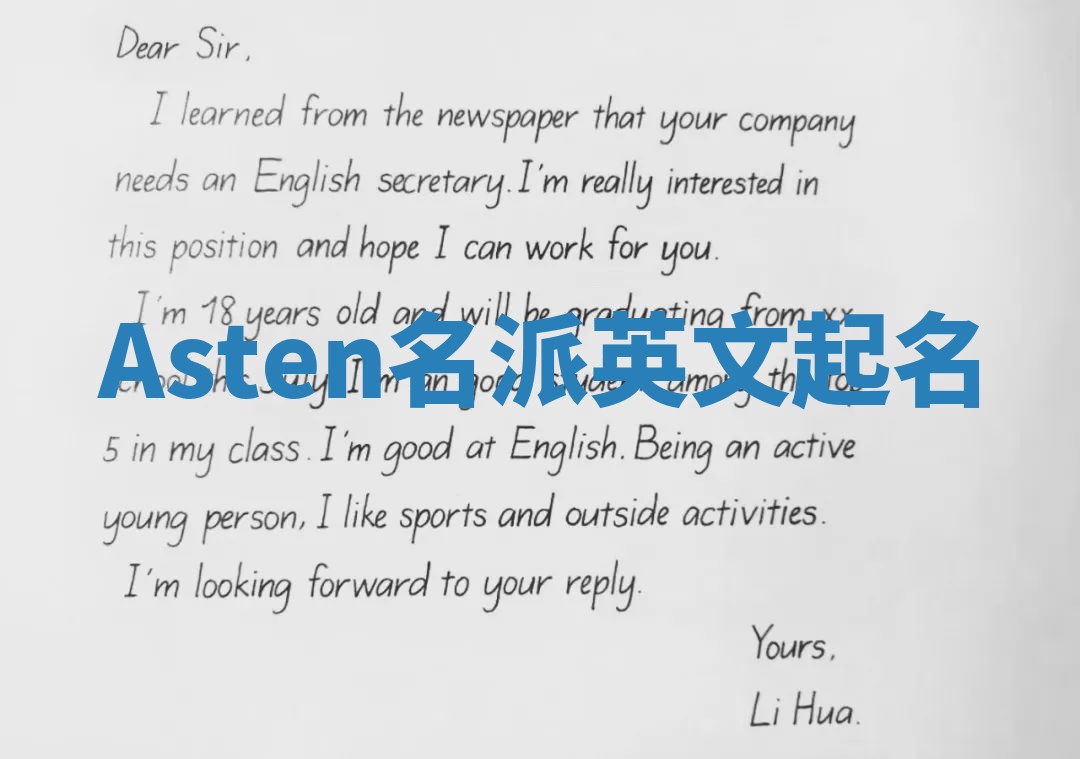 Dear Sir,
I learned from the newspaper that your company
needs an English secretary. I'm really interested in
this position and hope I can work for you.
I'm 18 years old and will be graduating from xx
Asten名派英文起名
school this July. I'm an good student among the top
5 in my class. I'm good at English. Being an active
young person, I like sports and outside activities.
I'm looking forward to your reply.
Yours,
Li Hua.